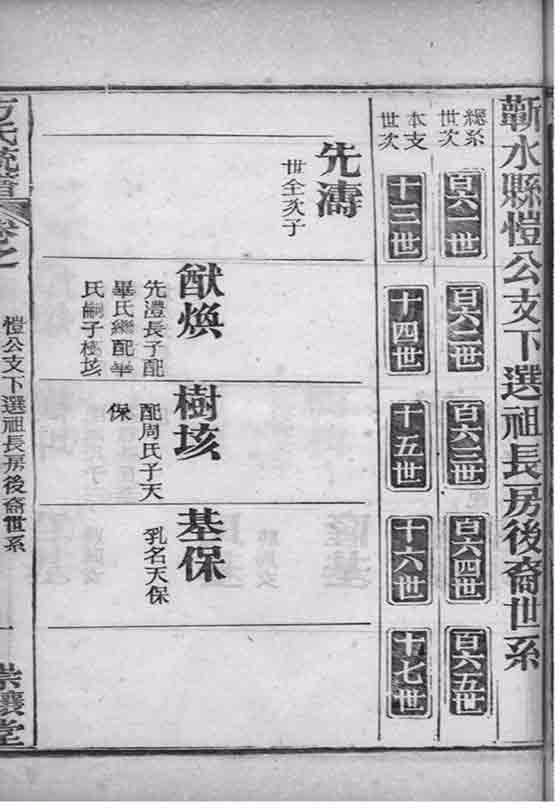 蘄水縣愷公支下選祖長房後裔世系
總系世次
百六一世
百六二世
百六三世
百六四世
百六五世
本支世次
十三世
十四世
十五世
十六世
十七世
先濤
世全次子
猷煥
先澧長子配
畢氏繼配畢
氏嗣子樹垓
樹垓
配周氏子天
保
基保
乳名天保
方氏統譜
卷之
愷公支下選祖長房後裔世系
一
崇讓堂